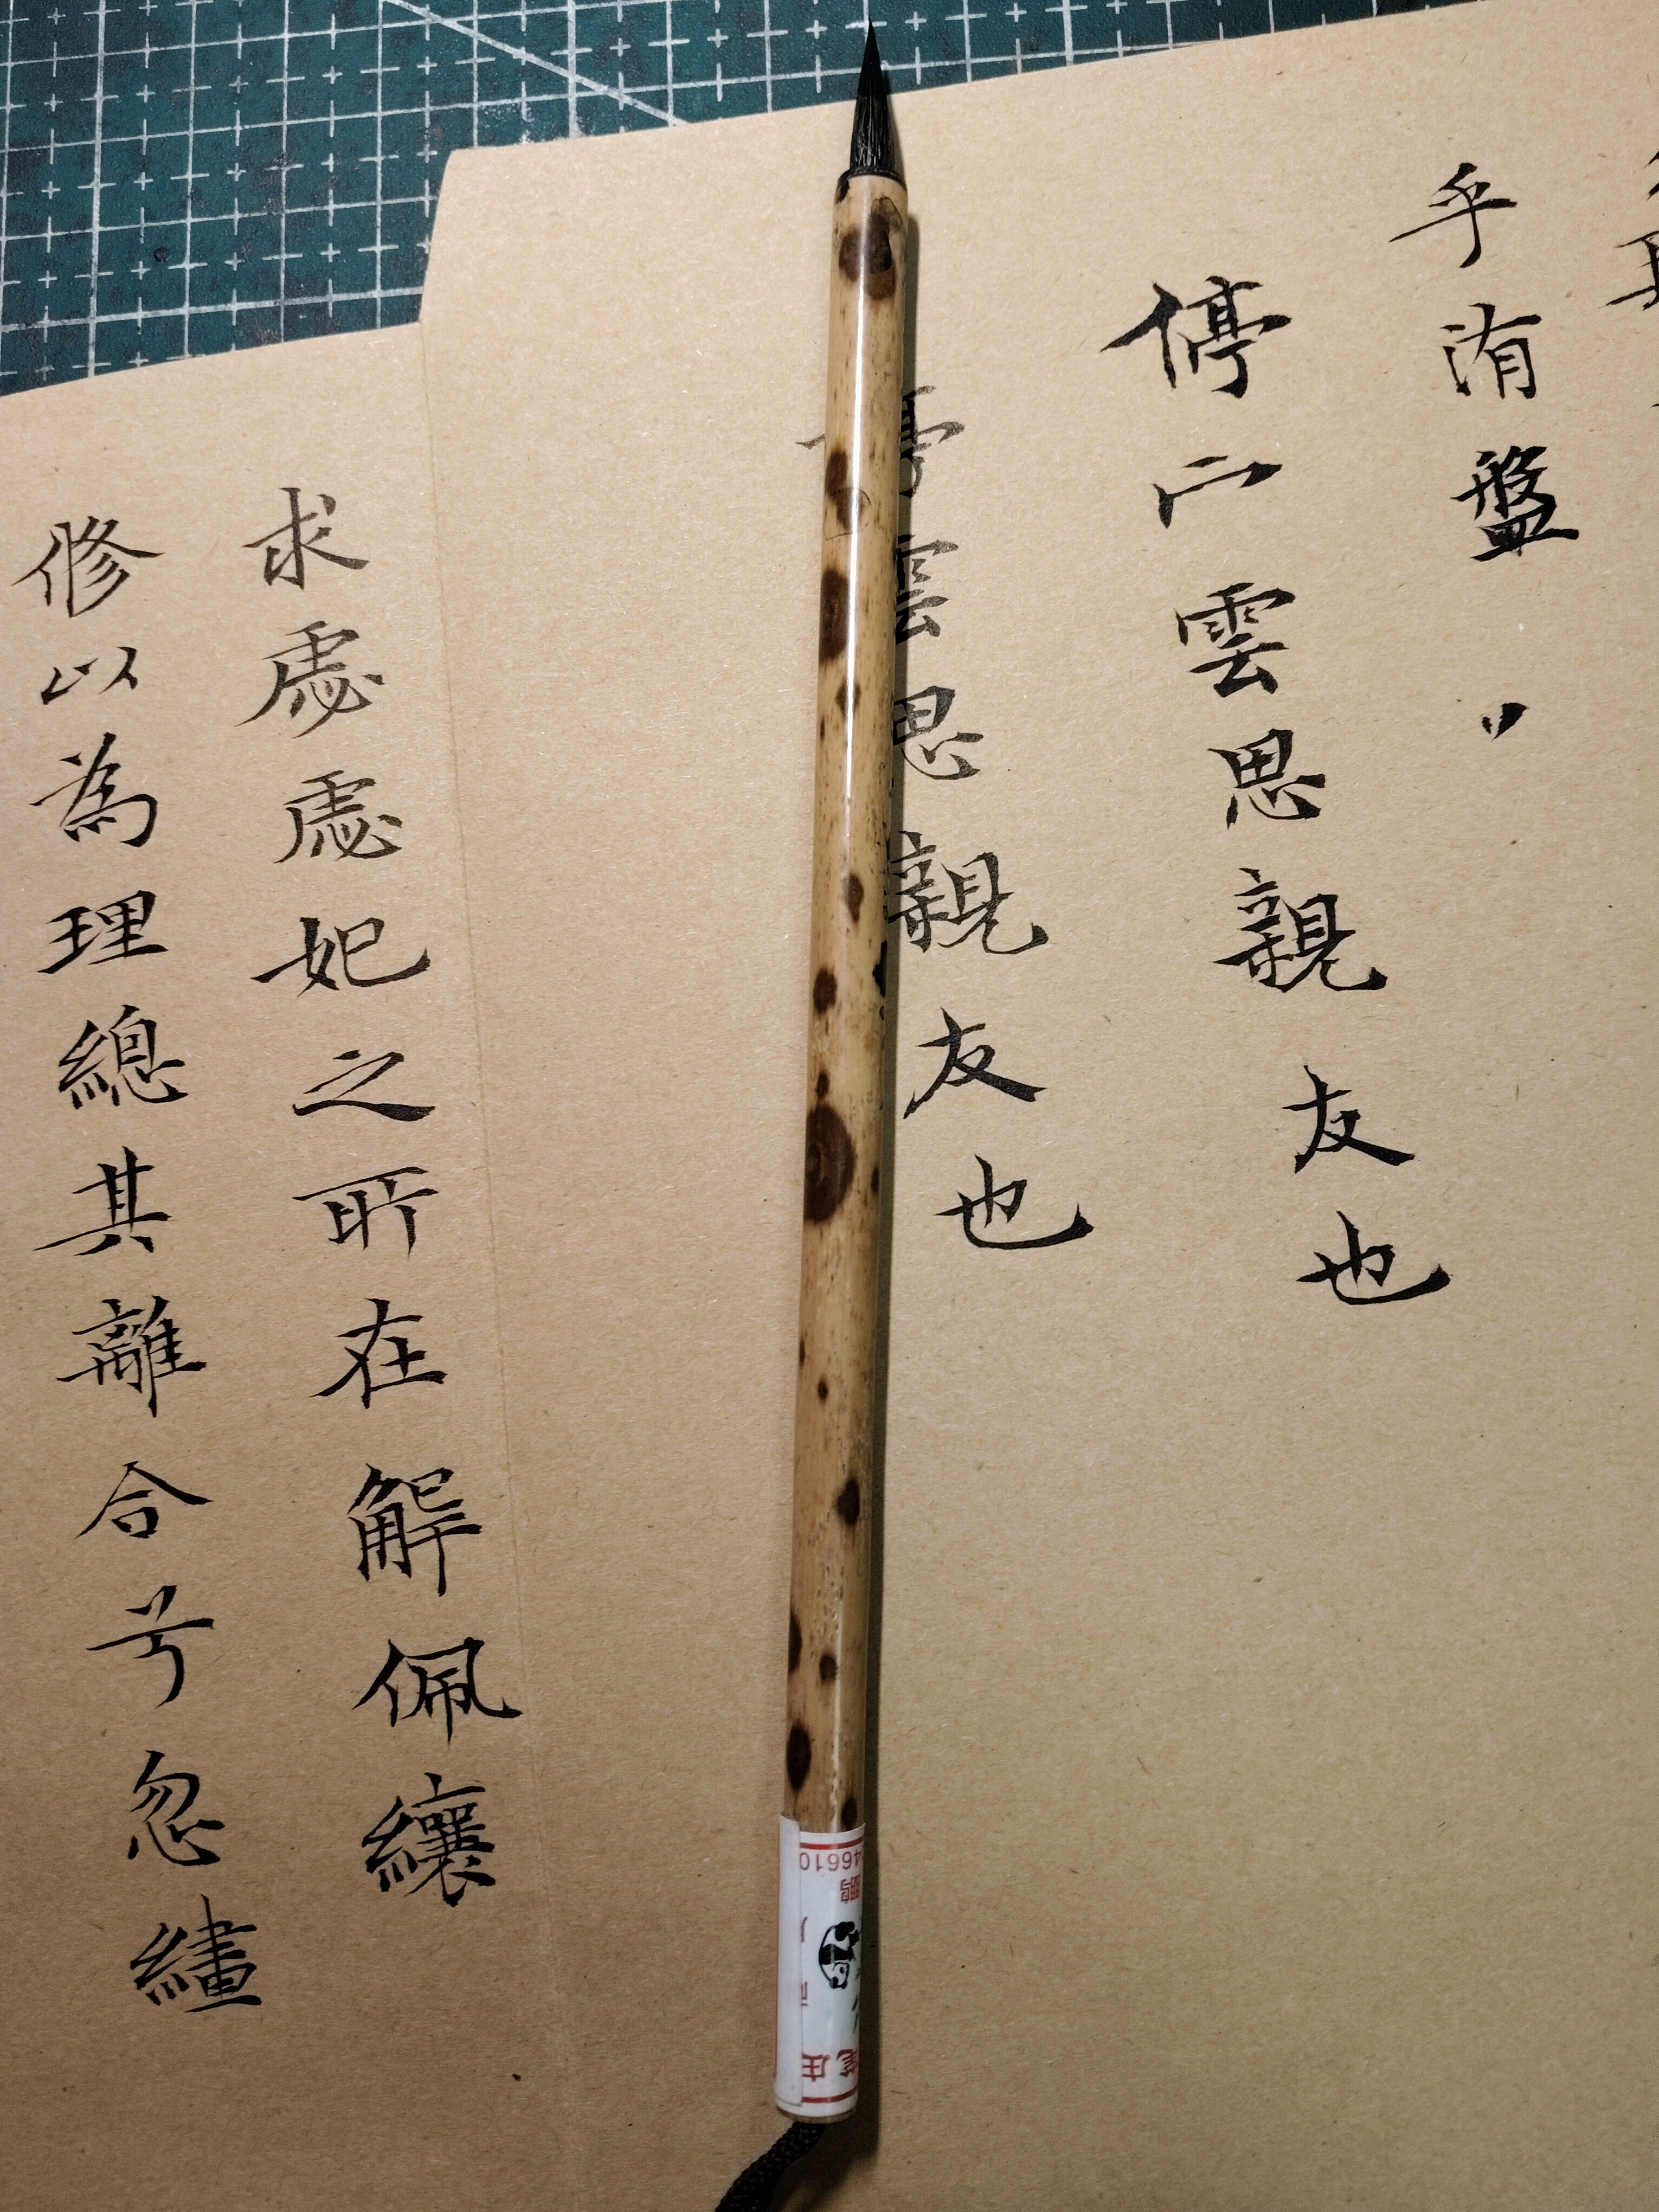 乎洧盤
停雲思親友也
雲思親友也
求虙虙妃之所在解佩纕
修以為理總其離合兮忽繣
笔庄
46610